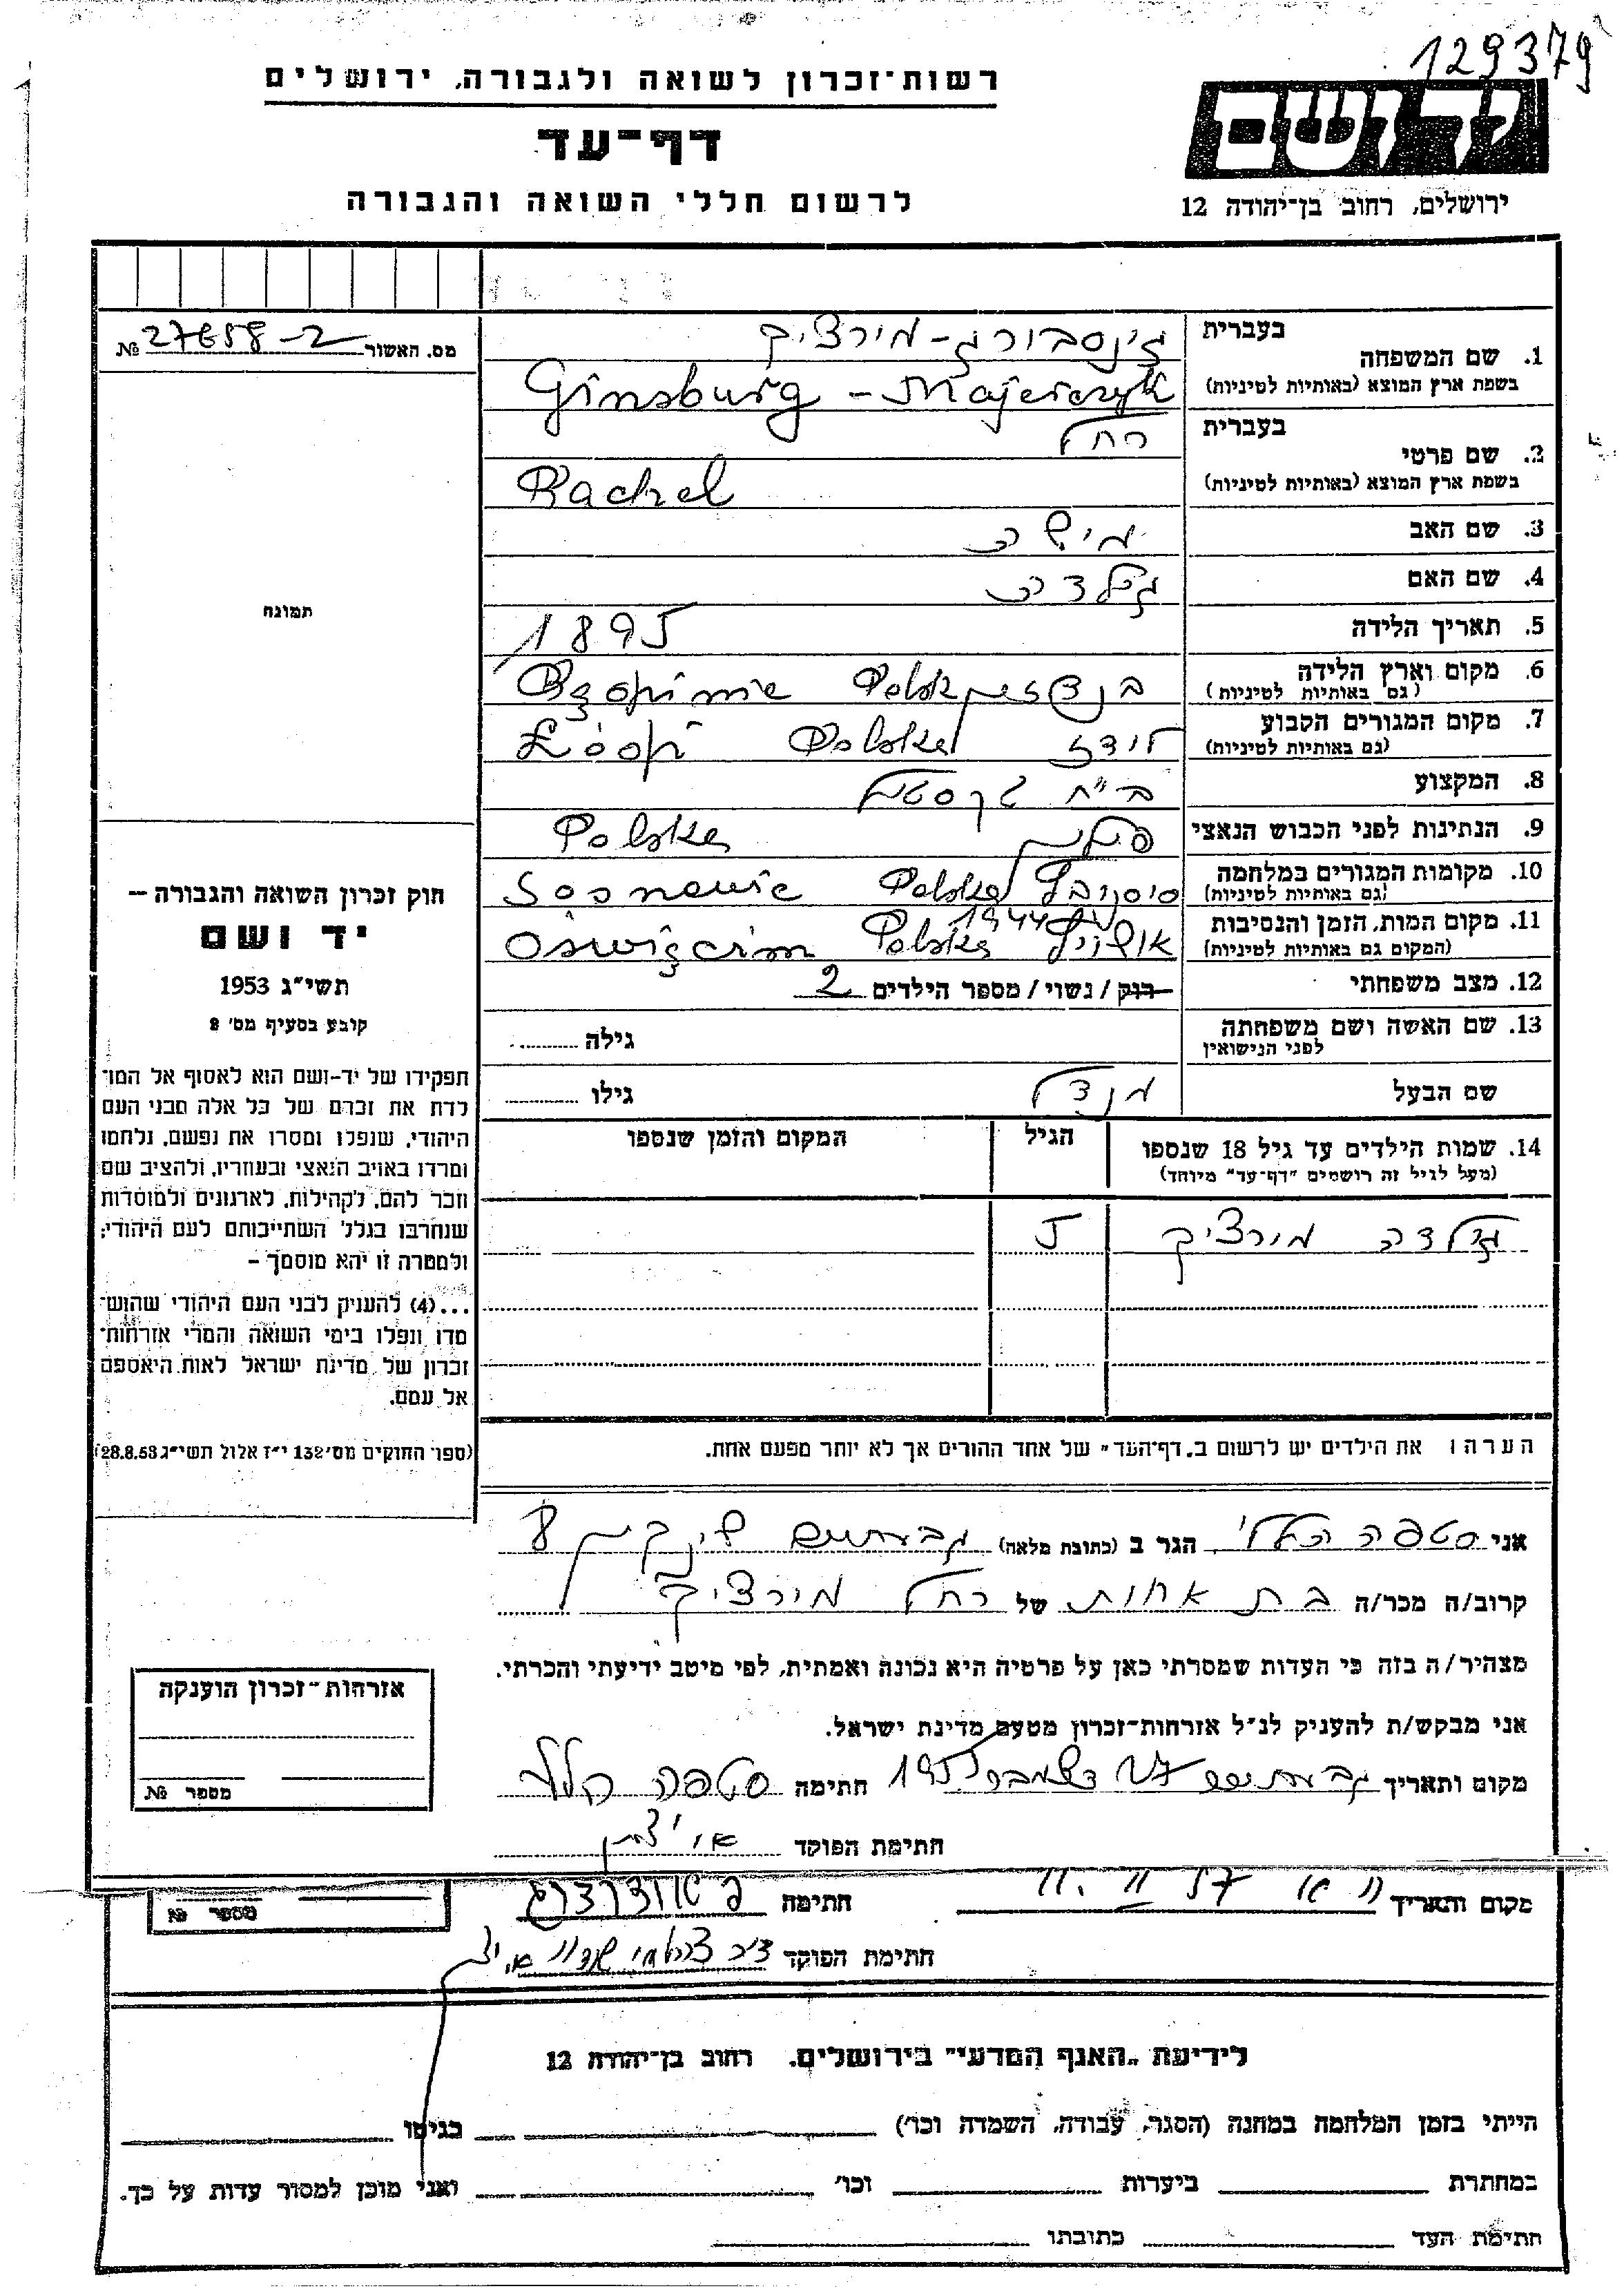 129379
רשות־זכרון לשואה ולגבורה, ירושלים
דף־עד
לרשום חללי השואה והגבורה
יד ושם
ירושלים, רחוב בן־יהודה 12
מס. האשור № 27658-2
תמונה
חוק זכרון השואה והגבורה —
יד ושם
תשי״ג 1953
קובע בסעיף מס׳ 2
תפקידו של יד-ושם הוא לאסוף אל המו־
לדת את זכרם של כל אלה מבני העם
היהודי, שנפלו ומסרו את נפשם, נלחמו
ומרדו באויב הנאצי ובעוזריו, ולהציב שם
וזכר להם, לקהילות, לארגונים ולמוסדות
שנחרבו בגלל השתייכותם לעם היהודי;
ולמטרה זו יהא מוסמך —
...(4) להעניק לבני העם היהודי שהוש־
מדו ונפלו בימי השואה והמרי אזרחות־
זכרון של מדינת ישראל לאות היאספם
אל עמם.
(ספר החוקים מס׳ 132 י״ז אלול תשי״ג 28.8.53)
בעברית גינסבורג-מירציק
1. שם המשפחה
בשפת ארץ המוצא (באותיות לטיניות) Ginsburg - Majerczyk
בעברית רחל
2. שם פרטי
בשפת ארץ המוצא (באותיות לטיניות) Rachel
3. שם האב מישה
4. שם האם גולדה
5. תאריך הלידה 1895
6. מקום וארץ הלידה Polska
(גם באותיות לטיניות)
7. מקום המגורים הקבוע לודז Polska
(גם באותיות לטיניות)
8. המקצוע
9. הנתינות לפני הכבוש הנאצי פולנית Polska
10. מקומות המגורים במלחמה Polska Sosnowic
(גם באותיות לטיניות)
11. מקום המות, הזמן והנסיבות 1944 Polska Oświęcim
(המקום גם באותיות לטיניות)
12. מצב משפחתי רווק / נשוי / מספר הילדים 2
13. שם האשה ושם משפחתה גילה
לפני הנישואין
שם הבעל מנדל גילו
14. שמות הילדים עד גיל 18 שנספו הגיל המקום והזמן שנספו
(מעל לגיל זה רושמים "דף־עד" מיוחד)
גולדה מירציק 5
הערה: את הילדים יש לרשום ב„דף־העד״ של אחד ההורים אך לא יותר מפעם אחת.
אני סטפה הללי הגר ב (כתובת מלאה) גבעתיים שינקין 8
קרוב/ה מכר/ה בת אחות של רחל מירציק
מצהיר/ה בזה כי העדות שמסרתי כאן על פרטיה היא נכונה ואמתית, לפי מיטב ידיעתי והכרתי.
אני מבקש/ת להעניק לנ״ל אזרחות־זכרון מטעם מדינת ישראל.
מקום ותאריך גבעתיים 27 דצמבר 1955 חתימה סטפה הללי
חתימת הפוקד
אזרחות־זכרון הוענקה
מספר №
מקום ותאריך חתימה
מספר №
חתימת הפוקד
לידיעת „האגף המדעי״ בירושלים, רחוב בן־יהודה 12
הייתי בזמן המלחמה במחנה (הסגר, עבודה, השמדה וכו׳) בגיטו
במחתרת ביערות וכו׳ ואני מוכן למסור עדות על כך.
חתימת העד כתובתו